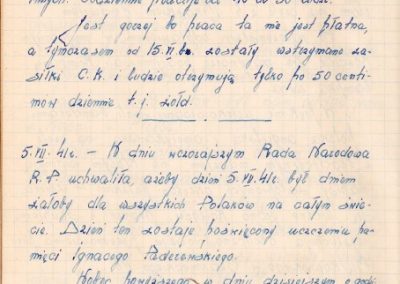 Jest gorzej bo praca ta nie jest płatna,
a tymczasem od 15.VI.br. zostały wstrzymane za-
siłki C.K. i ludzie otrzymują tylko po 50 centi-
mów dziennie t.j. żołd.
5.VII.41r. – W dniu wczorajszym Rada Narodowa
R.P. uchwaliła, ażeby dzień 5.VII.41r. był dniem
żałoby dla wszystkich Polaków na całym świe-
cie. Dzień ten zostaje poświęcony uczczeniu pa-
mięci Ignacego Paderewskiego.
Wobec powyższego w dniu dzisiejszym o godz